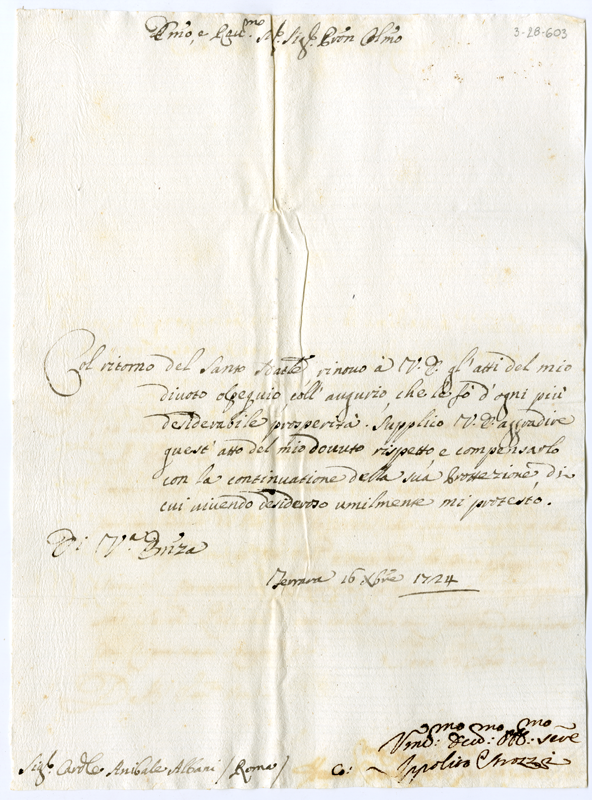 3-28-603
Emo, e Reũmo Sig.r Sig.r Pron Colmo
Col ritorno del Santo Natle, rinovo à V. E. gl'atti del mio
divoto ossequio coll' augurio che le fò d'ogni più
desiderabile prosperità. Supplico V. E. aggradire
quest' atto del mio dovuto rispetto e compensarlo
con la continuatione della sua Prottezione, di
cui vivendo desideroso umilmente mi protesto.
Di V.a Emza
Ferrara 16 Xbre 1724
Umo: Devmo: Obbmo: Serẽ
Sig.r Cardle Anibale Albani / Roma / Co: Ippolito Strozzi